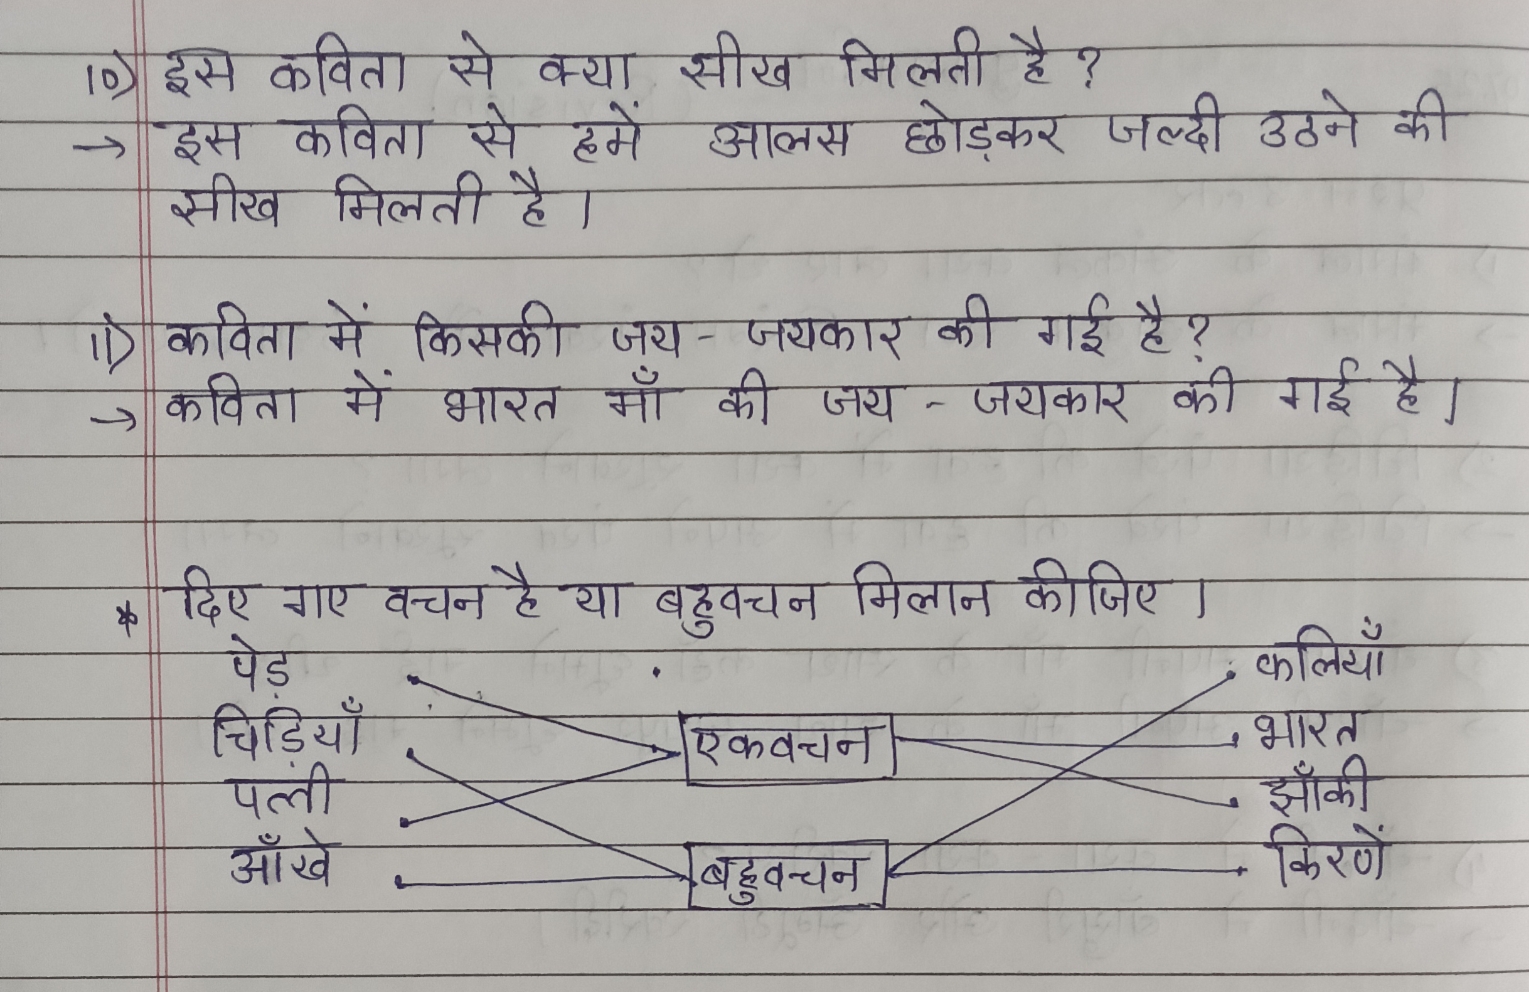 10) इस कविता से क्या सीख मिलती है ?
→ इस कविता से हमें आलस छोड़कर जल्दी उठने की
सीख मिलती है।
11) कविता में किसकी जय - जयकार की गई है ?
→ कविता में भारत माँ की जय - जयकार की गई है।
* दिए गए वचन है या बहुवचन मिलान कीजिए।
पेड़ कलियाँ
चिड़ियाँ एकवचन भारत
पत्ती झाँकी
आँखे बहुवचन किरणें